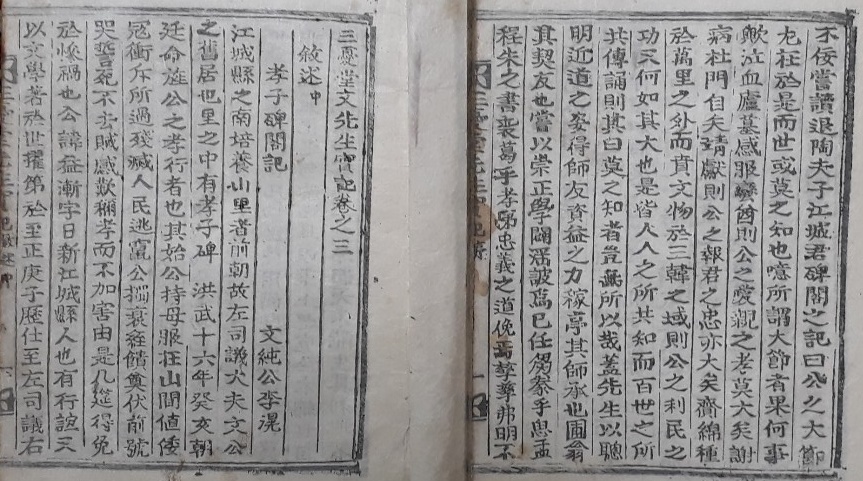 不佞嘗讀退陶夫子江城君碑閣之記曰公之大節
尢在於是而世或莫之知也噫所謂大節者果何事
歟泣血廬墓感服蠻酋則公之愛親之孝莫大矣謝
病杜門自夫靖獻則公之報君之忠亦大矣齎綿種
於萬里之外而賁文物於三韓之域則公之利民之
功又何如其大也是皆人人之所共知而百世之所
共傳誦則其曰莫之知者豈無所以哉蓋先生以聰
明近道之姿得師友資益之力稼亭其師承也圃翁
其契友也嘗以崇正學闢淫詖爲己任芻豢乎思孟
程朱之書裘葛乎孝悌忠義之道俛焉孳孳弗明不
三憂堂文先生實記卷之三
敘述中
孝子碑閣記
文純公李滉
江城縣之南培養山里者前朝故左司議大夫文公
之舊居也里之中有孝子碑 洪武十六年癸亥朝
廷命旌公之孝行者也其始公持母服在山閒值倭
冦衝斥所過殘滅人民逃竄公獨衰絰饋奠伏前號
哭誓死不去賊感歎稱孝而不加害由是几筵得免
於慘禍也公諱益漸字日新江城縣人也有行誼又
以文學著於世擢第於至正庚子歷仕至左司議右